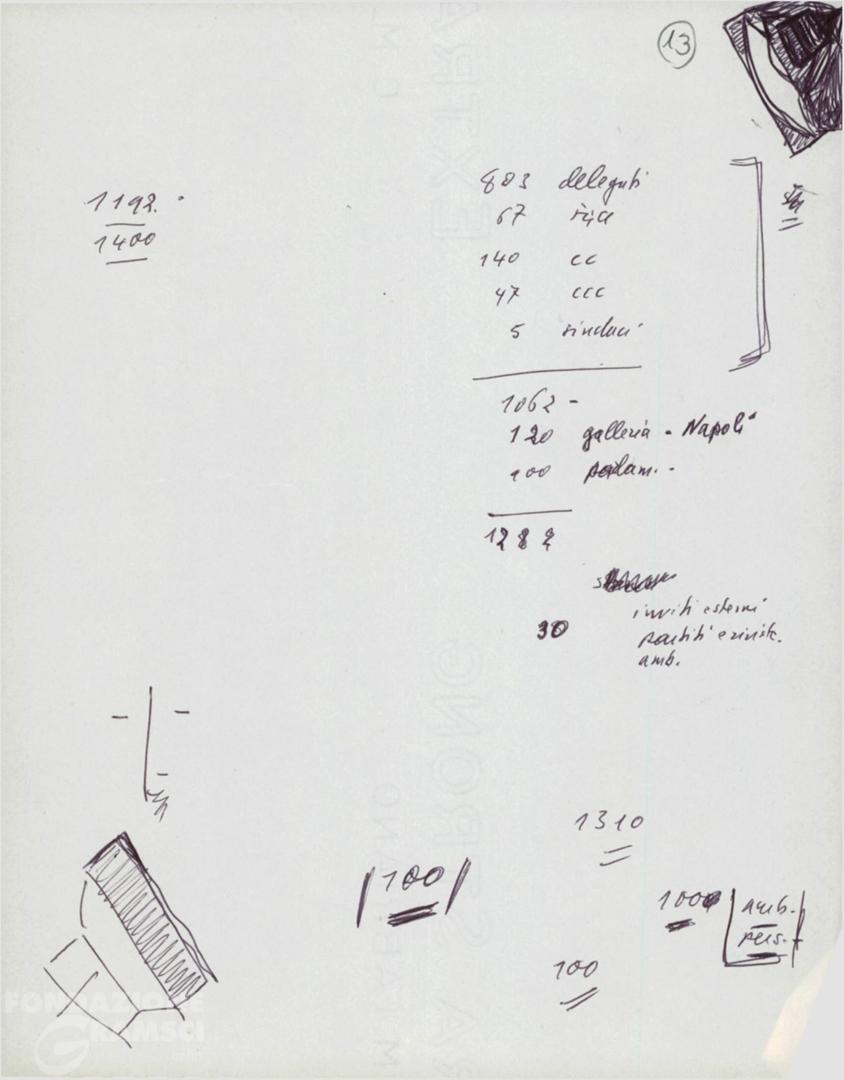 13
1192.
1400
803 delegati
67 
140 cc
47 ccc
5 sindaci
1062 -
120 galleria - Napoli
100 parlam. -
1282
inviti esterni
30 partiti e
amb.
1310
100
1000 amb.
100
FONDAZIONE
GRAMSCI
EXTRA STRONG
FABRIANO